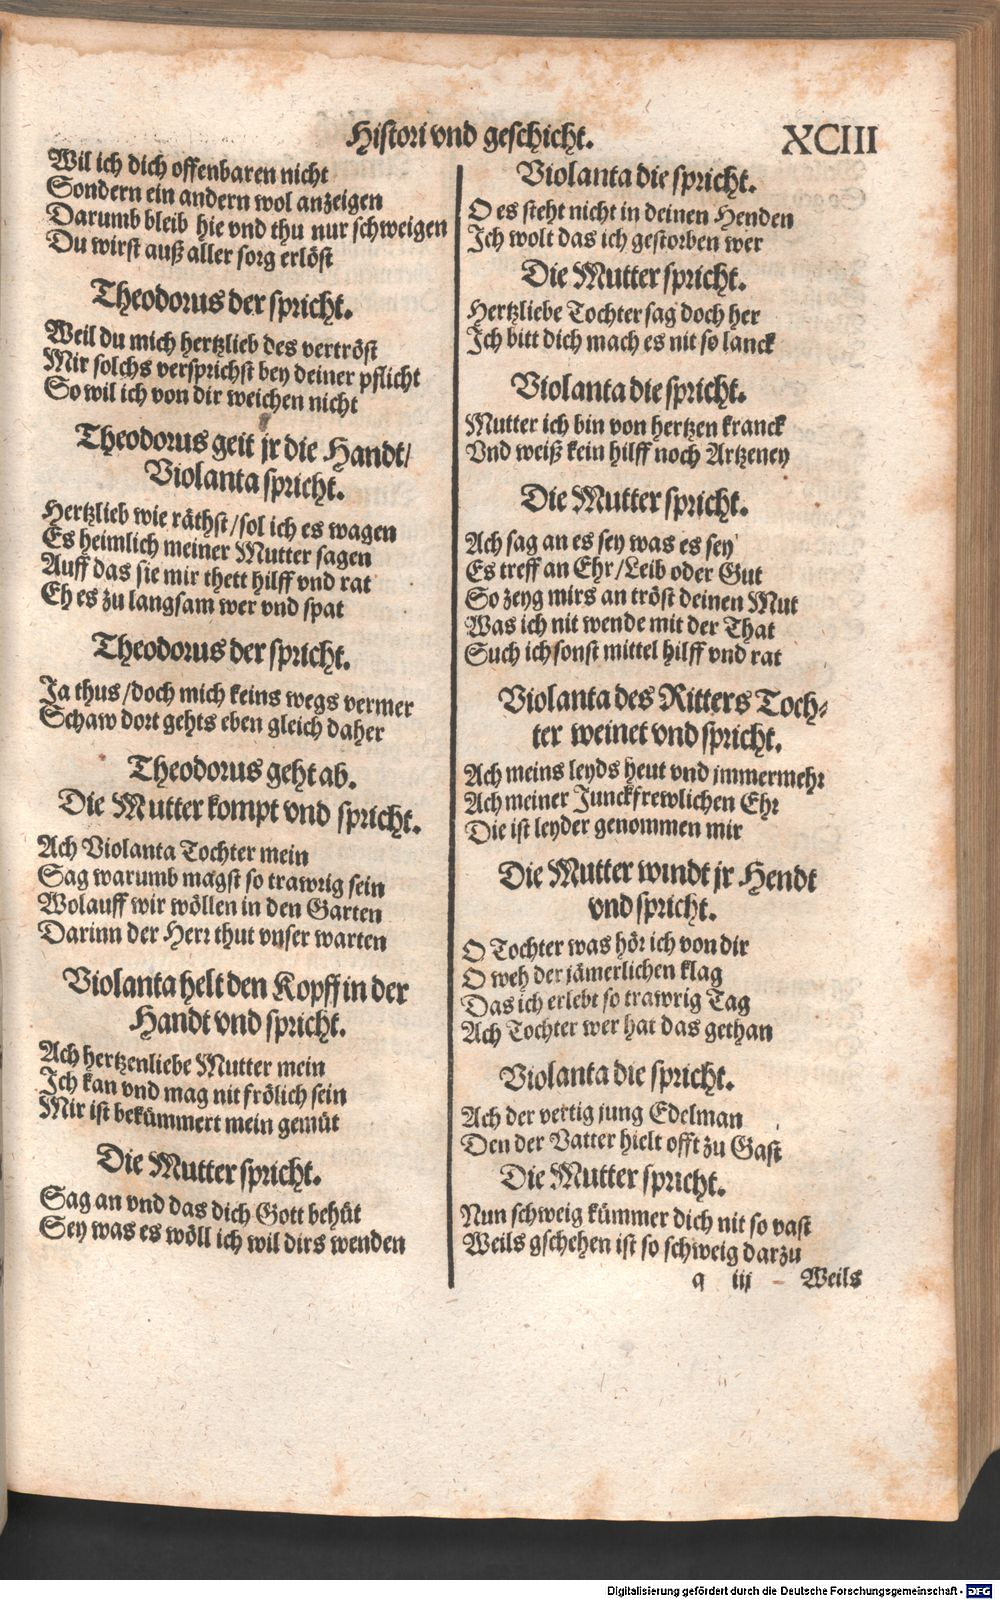 Histori vnd geschicht.
XCIII
Wil ich dich offenbaren nicht
Sondern ein andern wol anzeigen
Darumb bleib hie vnd thu nur schweigen
Du wirst auß aller sorg erlöst
Theodorus der spricht.
Weil du mich hertzlieb des vertröst
Mir solchs versprichst bey deiner pflicht
So wil ich von dir weichen nicht
Theodorus geit jr die Handt/
Violanta spricht.
Hertzlieb wie räthst/sol ich es wagen
Es heimlich meiner Mutter sagen
Auff das sie mir thett hilff vnd rat
Eh es zu langsam wer vnd spat
Theodorus der spricht.
Ja thus/doch mich keins wegs vermer
Schaw dort gehts eben gleich daher
Theodorus geht ab.
Die Mutter kompt vnd spricht.
Ach Violanta Tochter mein
Sag warumb magst so trawrig sein
Wolauff wir wöllen in den Garten
Darinn der Herr thut vnser warten
Violanta helt den Kopff in der
Handt vnd spricht.
Ach hertzenliebe Mutter mein
Ich kan vnd mag nit frölich sein
Mir ist bekümmert mein gemüt
Die Mutter spricht.
Sag an vnd das dich Gott behüt
Sey was es wöll ich wil dirs wenden
Violanta die spricht.
O es steht nicht in deinen Henden
Ich wolt das ich gestorben wer
Die Mutter spricht.
Hertzliebe Tochter sag doch her
Ich bitt dich mach es nit so lanck
Violanta die spricht.
Mutter ich bin von hertzen kranck
Vnd weiß kein hilff noch Artzeney
Die Mutter spricht.
Ach sag an es sey was es sey
Es treff an Ehr/Leib oder Gut
So zeyg mirs an tröst deinen Mut
Was ich nit wende mit der That
Such ich sonst mittel hilff vnd rat
Violanta des Ritters Toch-
ter weinet vnd spricht.
Ach meins leyds heut vnd jmmermehr
Ach meiner Junckfrewlichen Ehr
Die ist leyder genommen mir
Die Mutter windt jr Hendt
vnd spricht.
O Tochter was hör ich von dir
O weh der jämerlichen klag
Das ich erlebt so trawrig Tag
Ach Tochter wer hat das gethan
Violanta die spricht.
Ach der vertig jung Edelman
Den der Vatter hielt offt zu Gast
Die Mutter spricht.
Nun schweig kümmer dich nit so vast
Weils gschehen ist so schweig darzu
q iij Weils
Digitalisierung gefördert durch die Deutsche Forschungsgemeinschaft - DFG